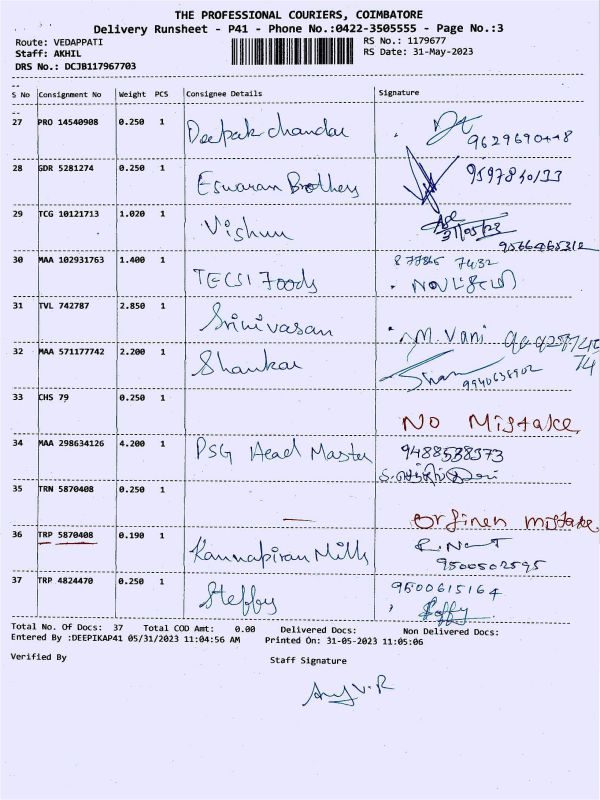 THE PROFESSIONAL COURIERS, COIMBATORE
Delivery Runsheet - P41 - Phone No.:0422-3505555 - Page No.:3
Route: VEDAPPATI
RS No.: 1179677
Staff: AKHIL
RS Date: 31-May-2023
DRS No.: DCJB117967703
S No Consignment No Weight PCS Consignee Details Signature
27 PRO 14540908 0.250 1 Deepak chandar
28 GDR 5281274 0.250 1 Eswaran Brothers
29 TCG 10121713 1.020 1 Vishnu 31/05/23
9566465312
30 MAA 102931763 1.400 1 TECSI Foods
31 TVL 742787 2.850 1 Srinivasan M. Vani
32 MAA 571177742 2.200 1 Shankar 9940638902
33 CHS 79 0.250 1 No Mistake
34 MAA 298634126 4.200 1 PSG Head Master 9488538373
35 TRN 5870408 0.250 1 mistake
36 TRP 5870408 0.190 1 Kannapiran Mills
9500502595
37 TRP 4824470 0.250 1 Steffy 9500615164
Total No. Of Docs: 37 Total COD Amt: 0.00 Delivered Docs: Non Delivered Docs:
Entered By :DEEPIKAP41 05/31/2023 11:04:56 AM Printed On: 31-05-2023 11:05:06
Verified By Staff Signature